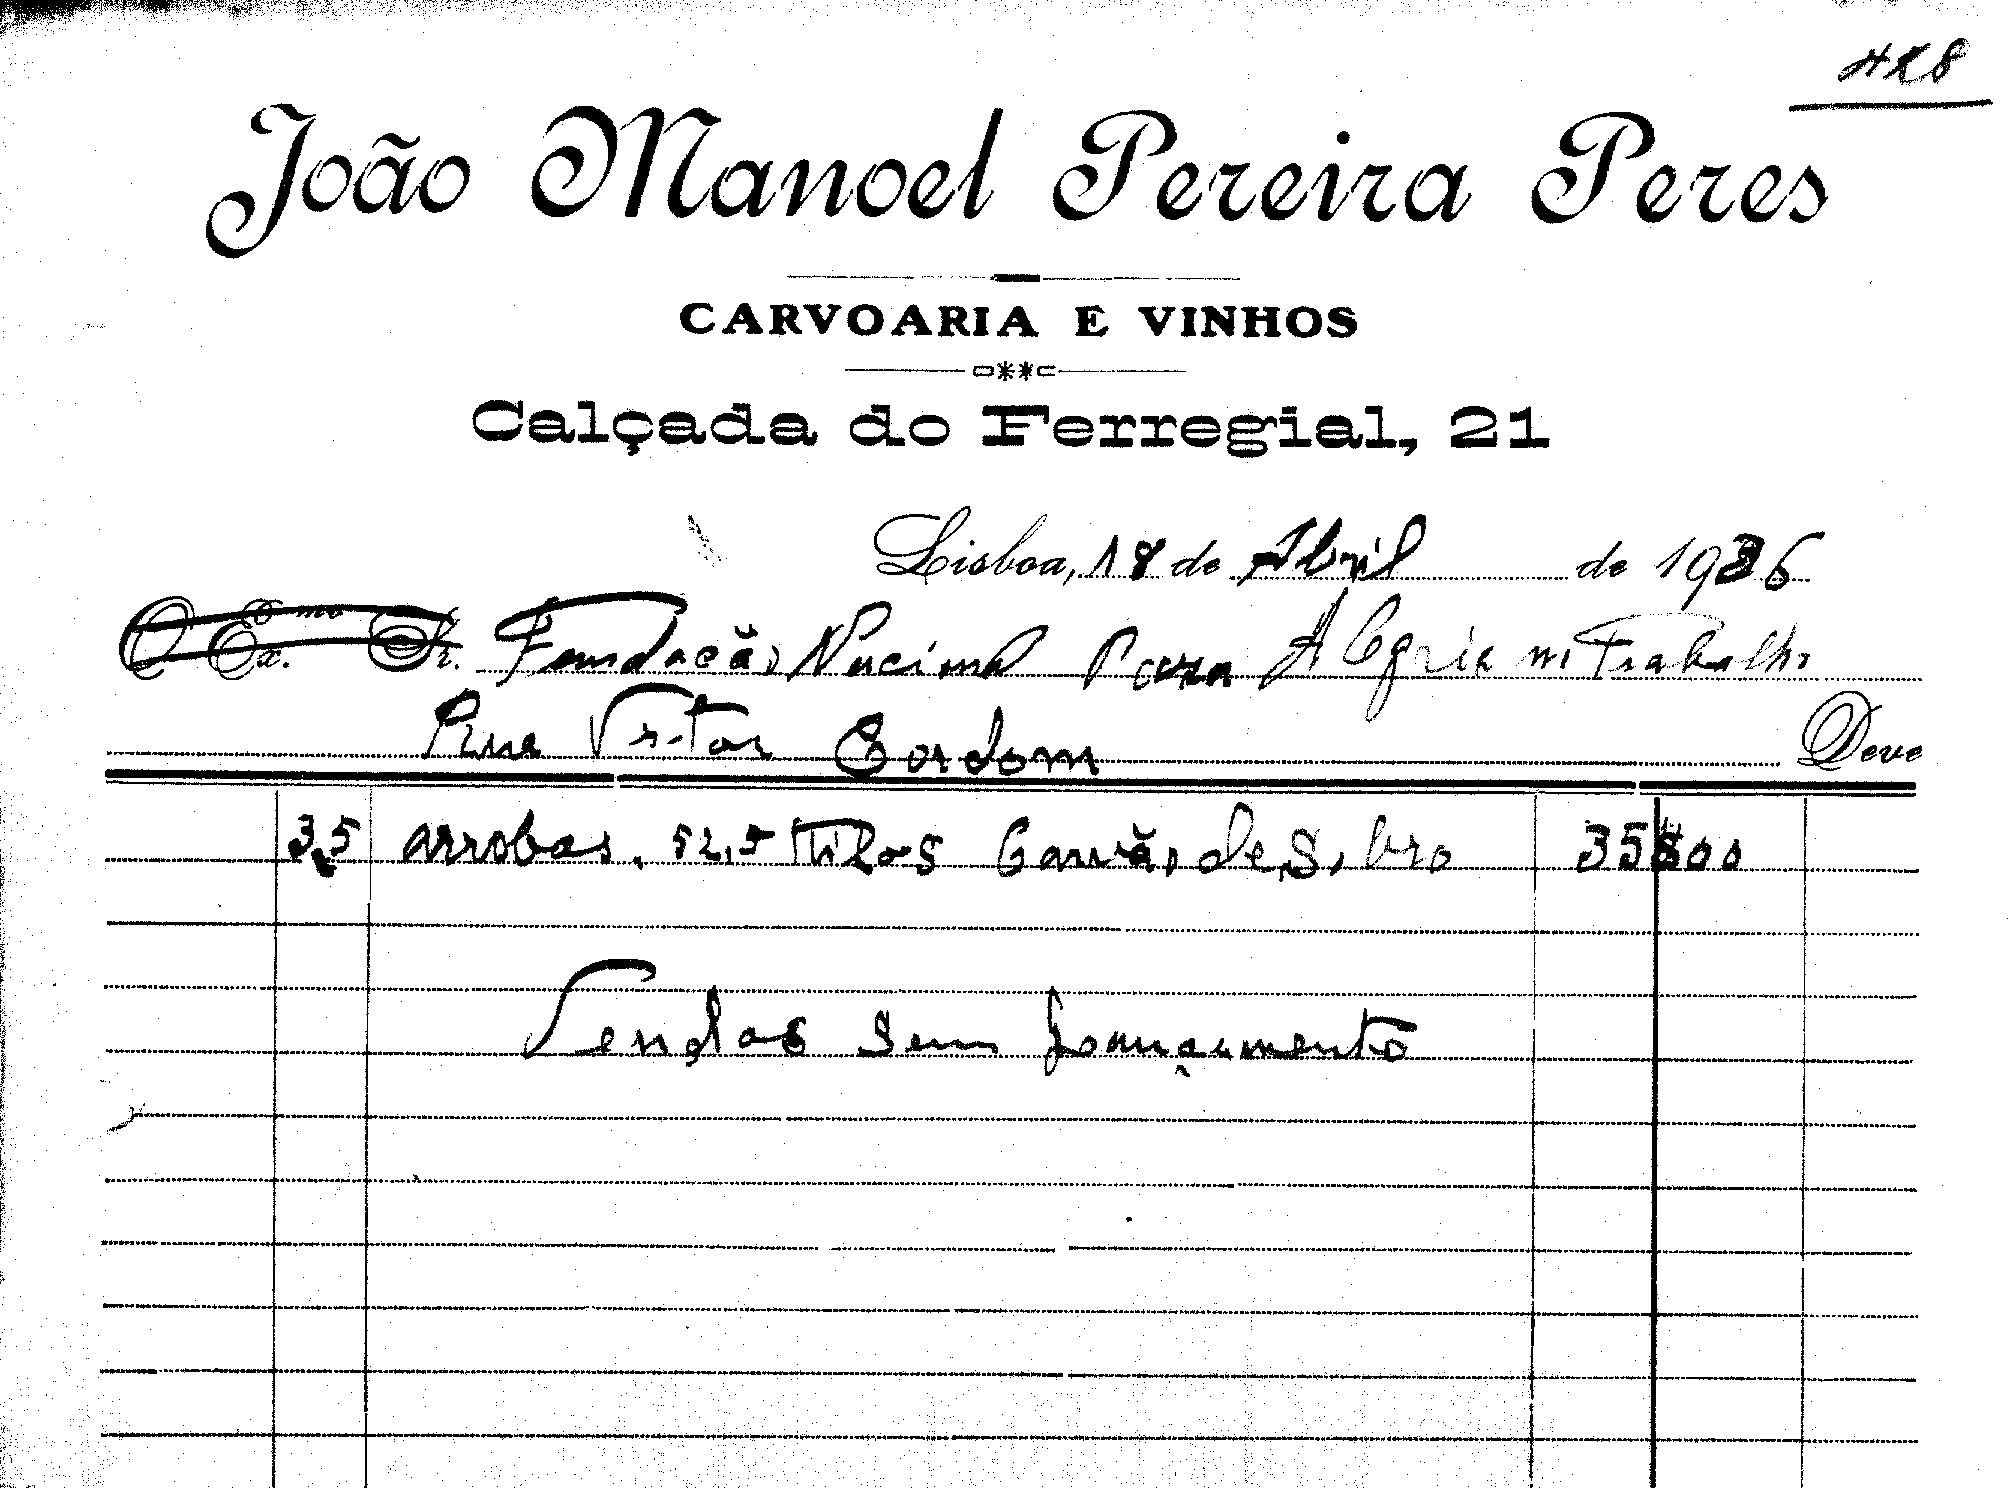 428
João Manoel Pereira Peres
CARVOARIA E VINHOS
Calçada do Ferregial, 21
Lisboa, 18 de Abril de 1936
O Ex.mo Sr. Fundacão Nacional Para Alegria no Trabalho
Rua Vitor Cordom
Deve
3,5 arrobas. 52,5 Kilos Carvão de Sobro 35$00
Vendas sem